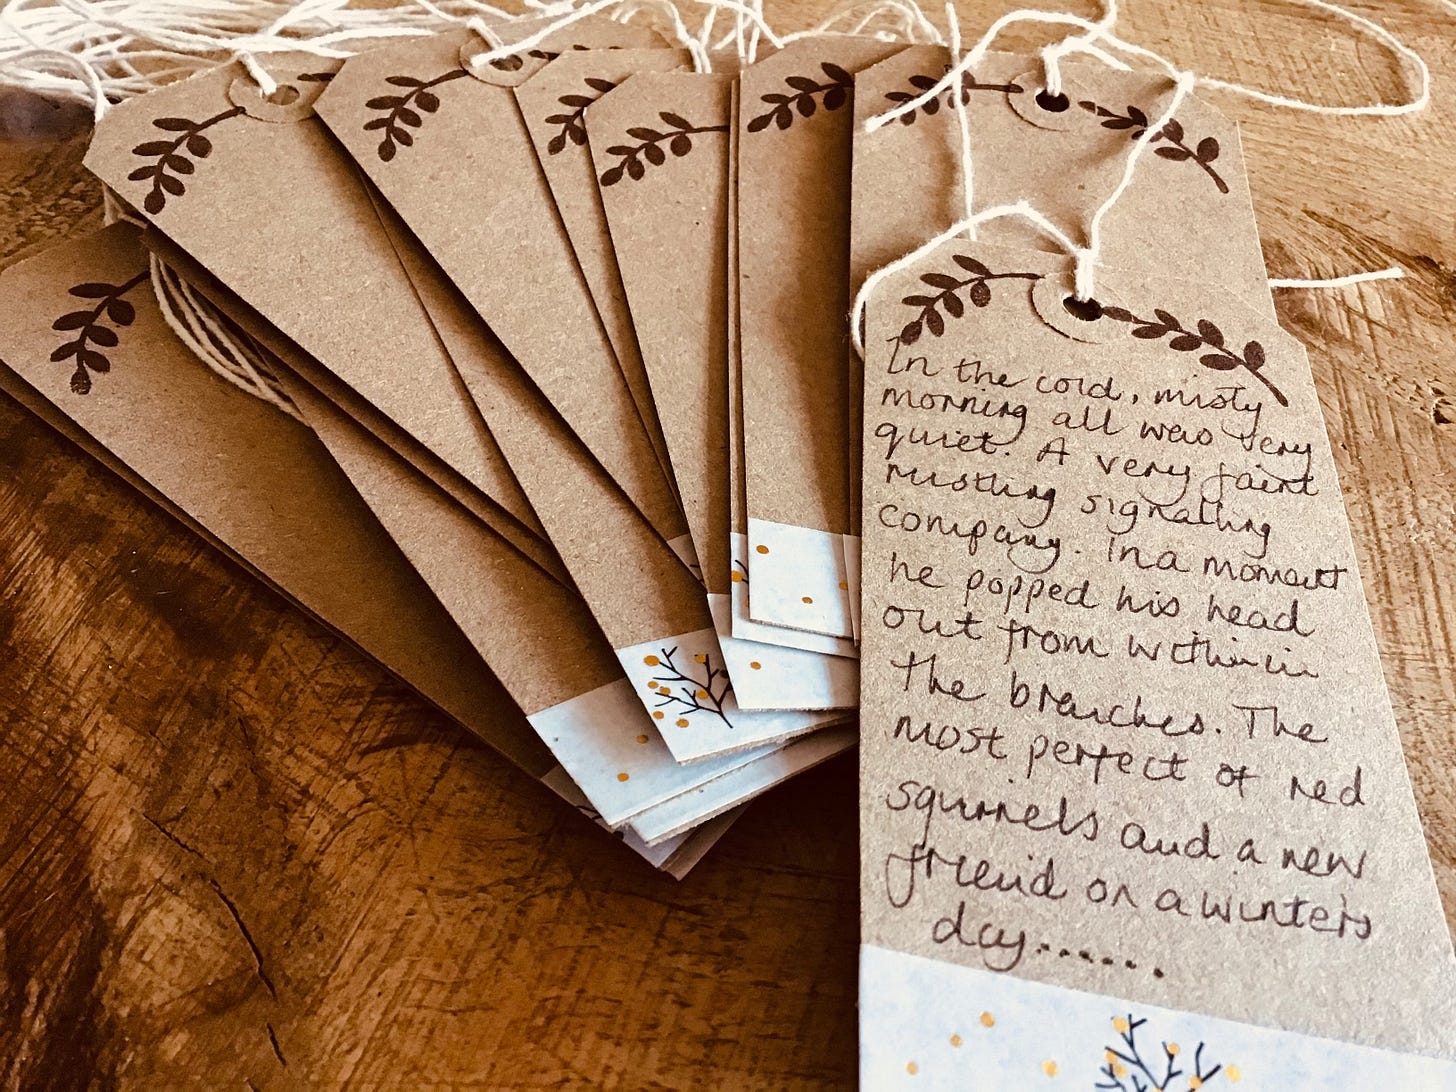 In the cold, misty
morning all was very
quiet. A very faint
rustling signalling
company. In a moment
he popped his head
out from within
the branches. The
most perfect of red
squirrels and a new
friend on a winters
day......